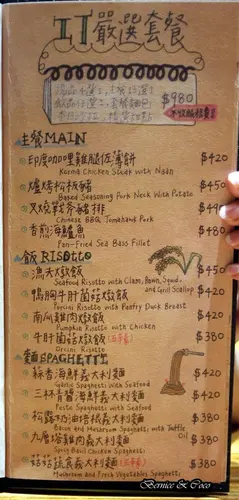 嚴選套餐
$980
主餐MAIN
$420
Korma Chicken Steak with Naan
爐烤松板豬 $450
Baked Seasoning Pork Neck With Potato
叉燒戰斧豬排
Chinese BBQ Tomahawk Pork
香煎海鱸魚 $480
Pan-Fried Sea Bass Fillet
飯 RISOTTO
漁夫燉飯 $450
Seafood Risotto with Clam, Prawn, Squid
and Grill Scallop
鴨胸牛肝菌菇燉飯 $420
Porcini Risotto with Panfry Duck Breast
南瓜雞肉燉飯 $420
Pumpkin Risotto with Chicken
牛肝菌菇燉飯 $380
Porcini Risotto
麵 SPAGHETTI
蒜香海鮮義大利麵 $420
Garlic Spaghetti With Seafood
三杯青醬海鮮義大利麵 $420
Pesto Spaghetti with Seafood
松露奶油培根義大利麵 $380
Bacon and Mushroom Spaghetti with Truffle
Oil
九層塔雞肉義大利麵 $380
Spicy Basil Chicken Spaghetti
菇菇蔬食義大利麵 $380
Mushroom and Fresh Vegetables Spaghetti
Bernice & Coco